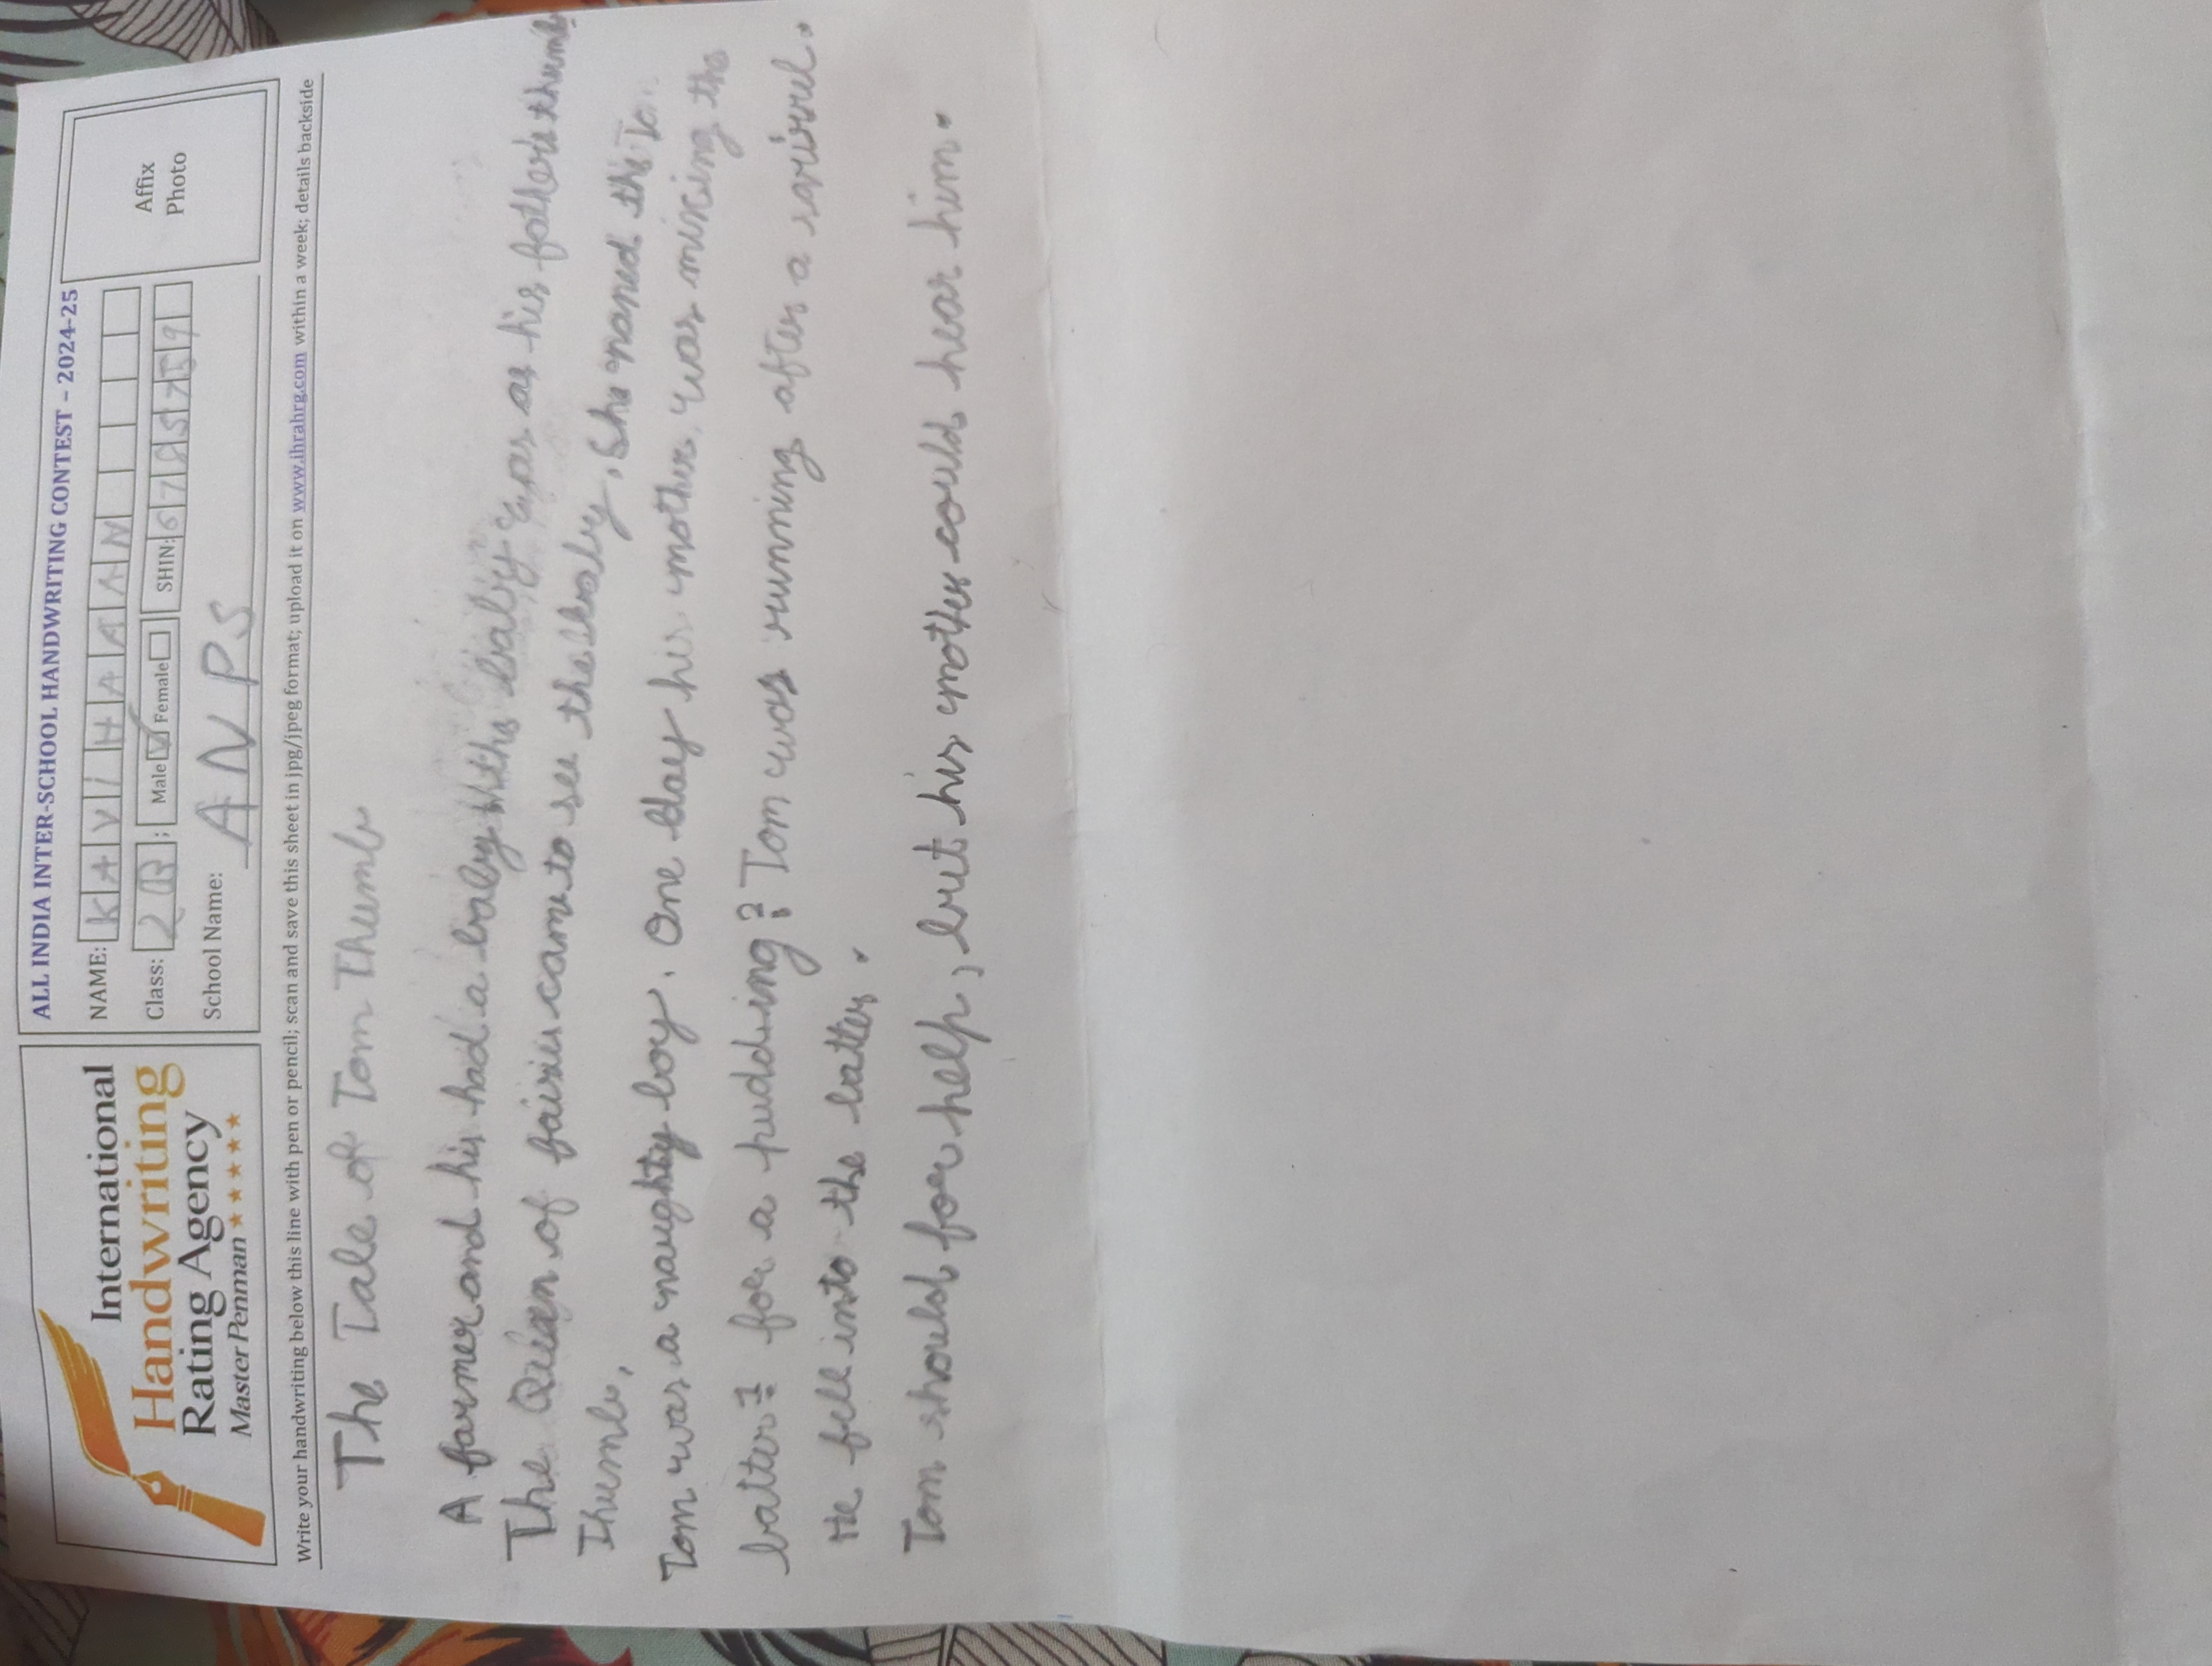 International
Handwriting
Rating Agency
Master Penman ★★★★★★
ALL INDIA INTER-SCHOOL HANDWRITING CONTEST – 2024-25
NAME: KAVIHAAN
Class: 2 B ; Male ☑ Female ☐ SHIN:
School Name: ANPS
Affix
Photo
Write your handwriting below this line with pen or pencil; scan and save this sheet in jpg/jpeg format; upload it on www.ihrahrg.com within a week; details backside
The Tale of Tom Thumb
A farmer and his had a baby the baby was as his father's thumb
The Queen of fairies came to see the baby, She named the Tom
Thumb,
Tom was a naughty boy. One day his mother, was mixing the
batter for a pudding Tom was running after a
He fell into the batter.
Tom should for help, but his mother could hear him.